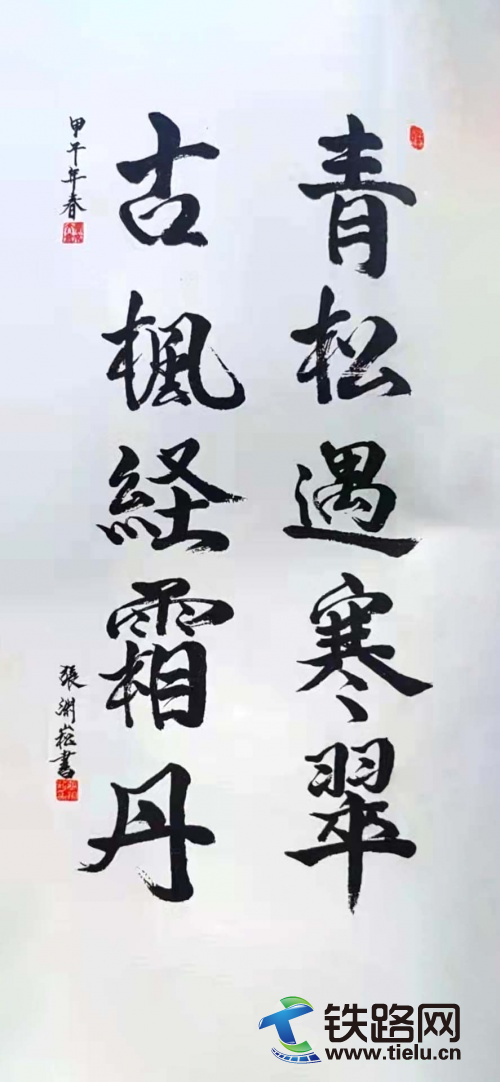 青松遇寒翠
古楓経霜丹
甲午年春
張渊崧書
铁路网
www.tielu.cn